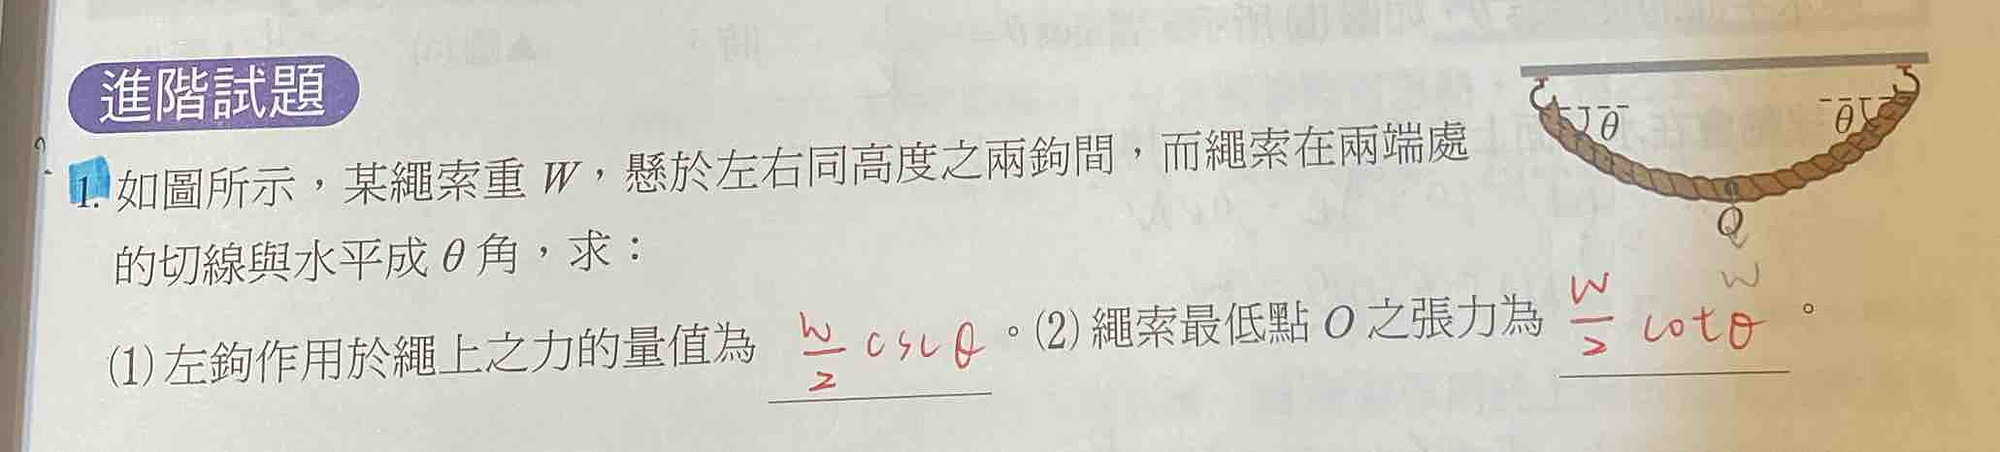 進階試題
θ θ
1. 如圖所示，某繩索重 W，懸於左右同高度之兩鉤間，而繩索在兩端處
O
的切線與水平成 θ 角，求：
W
(1) 左鉤作用於繩上之力的量值為 W/2 cscθ 。(2) 繩索最低點 O 之張力為 W/2 cotθ 。